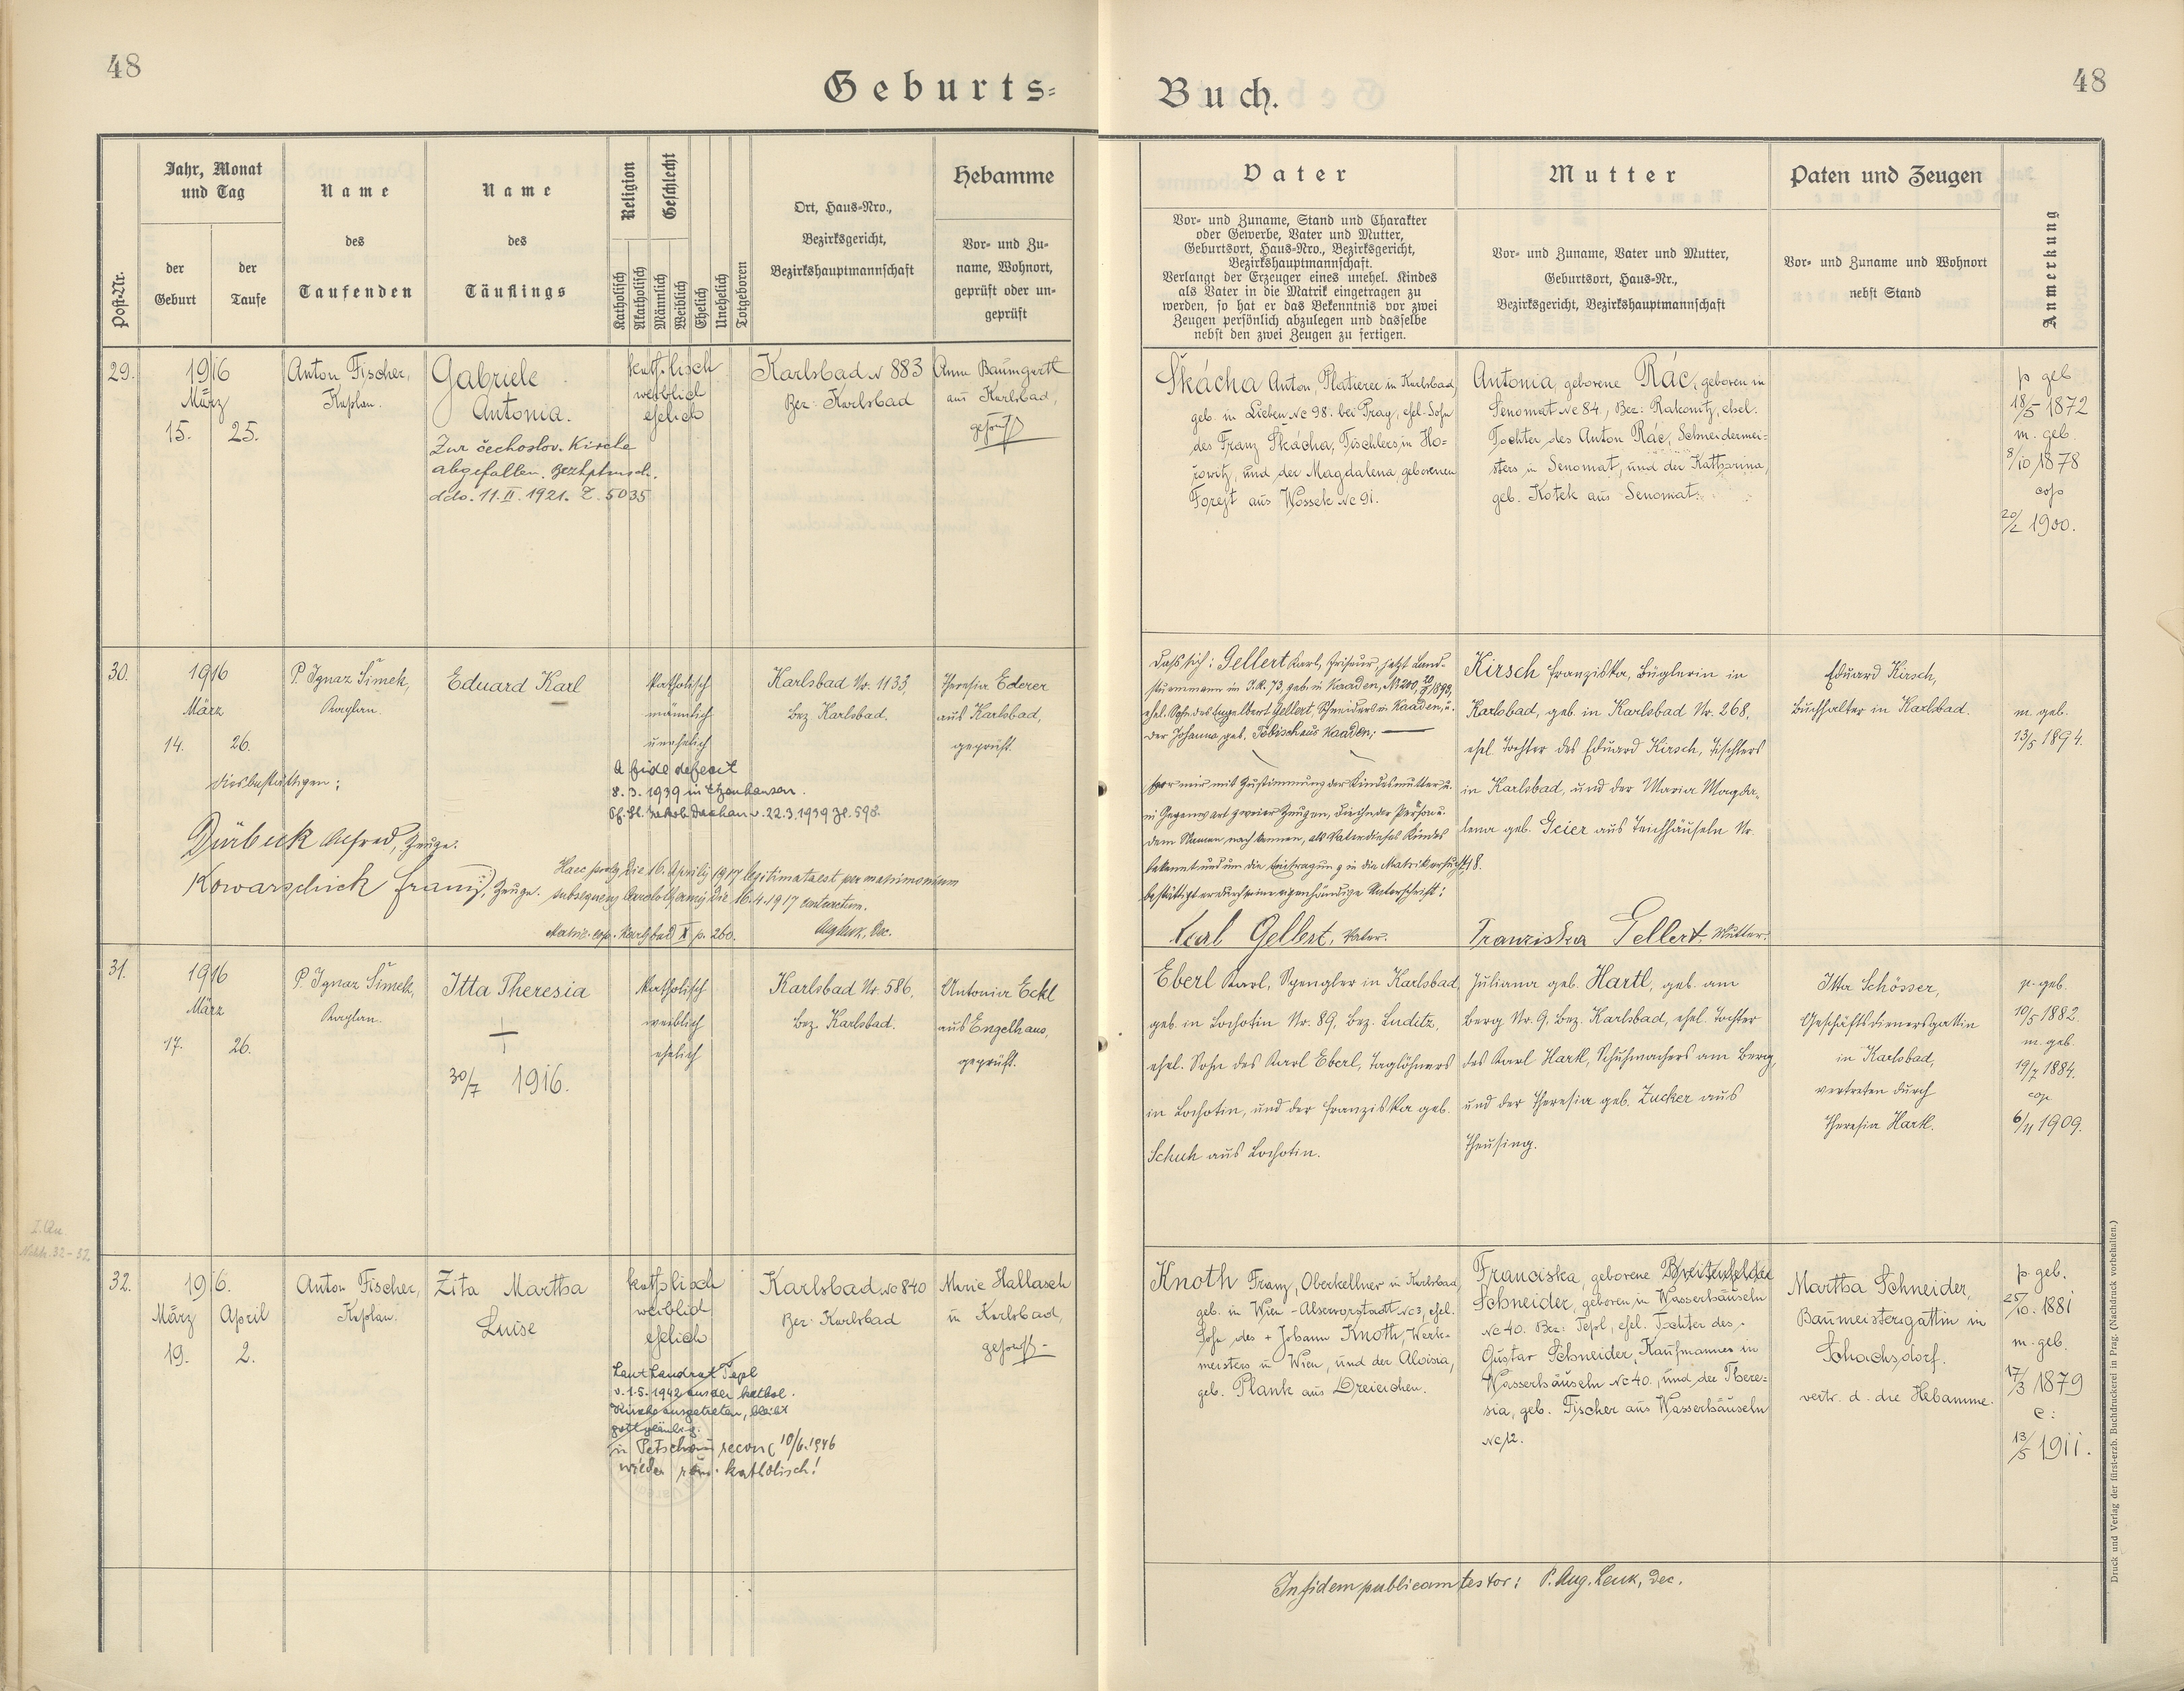 48
Geburts-
Buch.
48
Post-Nr.
Jahr, Monat
und Tag
der
Geburt
der
Taufe
Name
des
Taufenden
Name
des
Täuflings
Religion
Geschlecht
Katholisch
Akatholisch
Männlich
Weiblich
Ehelich
Unehelich
Totgeboren
Ort, Haus-Nro.,
Bezirksgericht,
Bezirkshauptmannschaft
Hebamme
Vor- und Zu-
name, Wohnort,
geprüft oder un-
geprüft
Vater
Vor- und Zuname, Stand und Charakter
oder Gewerbe, Vater und Mutter,
Geburtsort, Haus-Nro., Bezirksgericht,
Bezirkshauptmannschaft.
Verlangt der Erzeuger eines unehel. Kindes
als Vater in die Matrik eingetragen zu
werden, so hat er das Bekenntnis vor zwei
Zeugen persönlich abzulegen und dasselbe
nebst den zwei Zeugen zu fertigen.
Mutter
Vor- und Zuname, Vater und Mutter,
Geburtsort, Haus-Nr.,
Bezirksgericht, Bezirkshauptmannschaft
Paten und Zeugen
Vor- und Zuname und Wohnort
nebst Stand
Anmerkung
29.
1916
März
15.
25.
Anton Fischer,
Kaplan.
Gabriele
Antonia.
Zur čechoslov. Kirche
abgefallen. Bezhptmsch.
ddo. 11.II.1921. Z. 5035
katholisch
weiblich
ehelich
Karlsbad N 883
Bez: Karlsbad
Anna Baumgartl
aus Karlsbad,
geprüft
Škácha Anton, Platierer in Karlsbad,
geb. in Lieben Nc 98. bei Prag, ehel. Sohn
des Franz Škácha, Tischlers in Ho-
řowitz, und der Magdalena geborenen
Forejt aus Wossek Nc 91.
Antonia, geborene Rác, geboren in
Senomat Nc 84, Bez: Rakonitz, ehel.
Tochter des Anton Rác, Schneidermei-
sters in Senomat, und der Katharina,
geb. Kotek aus Senomat.
p geb
18/5 1872
m. geb.
8/10 1878
cop
20/2 1900.
30.
1916
März
14.
26.
dies bestättigen:
P. Ignaz Šimek,
Kaplan.
Eduard Karl
katholisch
männlich
unehelich
A fide defecit
8.3.1939 in
22.3.1939 Zl. 598.
Karlsbad Nr. 1133,
Bez. Karlsbad.
Theresia Ederer
aus Karlsbad,
geprüft.
Dürbeck Alfred, Zeuge.
Kowarschick Franz, Zeuge.
Haec proles die 16. Aprilis 1917 legitimata est per matrimonium
subsequens die 16.4.1917 contractum.
Matric. cop. Karlsbad X p. 260.
Aug. Leuk, Dec.
Dass sich: Gellert Karl, Friseur, jetzt Land-
sturmmann im I.R. 73, geb. in Kaaden, Nr 200, 1893,
ehel. Sohn des Engelbert Gellert, Schneiders in Kaaden, u.
der Johanna geb. Tobisch aus Kaaden;
vor mir mit Zustimmung der Kindesmutter u.
in Gegenwart zweier Zeugen, die ihn der Person u.
dem Namen nach kennen, als Vater dieses Kindes
bekennt und um die Eintragung in die Matrik ersucht,
bestättigt er durch seine eigenhändige Unterschrift:
Karl Gellert, Vater.
Kirsch Franziska, Büglerin in
Karlsbad, geb. in Karlsbad Nr. 268,
ehel. Tochter des Eduard Kirsch, Tischlers
in Karlsbad, und der Maria Magda-
lena geb. Geier aus Teichhäuseln Nr.
18.
Franziska Gellert, Mutter.
Eduard Kirsch,
Buchhalter in Karlsbad.
m. geb.
13/5 1894.
31.
1916
März
17.
26.
P. Ignaz Šimek,
Kaplan.
Itta Theresia
+
30/7 1916.
katholisch
weiblich
ehelich
Karlsbad Nr. 586,
Bez. Karlsbad.
Antonia Eckl
aus Engelhaus,
geprüft.
Eberl Karl, Spengler in Karlsbad,
geb. in Lochotin Nr. 89, Bez. Luditz,
ehel. Sohn des Karl Eberl, Taglöhners
in Lochotin, und der Franziska geb.
Schuh aus Lochotin.
Juliana geb. Hartl, geb. am
Berg Nr. 9, Bez. Karlsbad, ehel. Tochter
des Karl Hartl, Schuhmachers am Berg,
und der Theresia geb. Zucker aus
Theusing.
Itta Schösser,
Geschäftsdienersgattin
in Karlsbad,
vertreten durch
Theresia Hartl.
p. geb.
10/5 1882.
m. geb.
19/7 1884.
cop
6/11 1909.
32.
1916.
März
April
19.
2.
Anton Fischer,
Kaplan.
Zita Martha
Luise
katholisch
weiblich
ehelich
Laut Landrat Tepl
v. 1.5.1942 aus der kathol.
Kirche ausgetreten, bleibt
gottgläubig.
in Petschau reconc 10/6.1946
wieder röm. katholisch!
Karlsbad Nc 840
Bez: Karlsbad
Marie Hallasch
in Karlsbad,
geprüft
Knoth Franz, Oberkellner in Karlsbad,
geb. in Wien-Alservorstadt Nc 3, ehel.
Sohn des + Johann Knoth, Werk-
meisters in Wien, und der Aloisia,
geb. Plank aus Dreieichen.
Franciska, geborene
Schneider, geboren in Wasserhäuseln
Nc 40. Bez: Tepl, ehel. Tochter des
Gustav Schneider, Kaufmannes in
Wasserhäuseln Nc 40., und der There-
sia, geb. Fischer aus Wasserhäuseln
Nc 12.
Martha Schneider,
Baumeistersgattin in
Schachsdorf.
vertr. d. die Hebamme.
p geb.
25/10. 1881
m. geb.
17/3 1879
c:
13/5 1911.
In fidem publicam testor: P. Aug. Leuk, Dec.
Druck und Verlag der fürst-erzb. Buchdruckerei in Prag. (Nachdruck vorbehalten.)